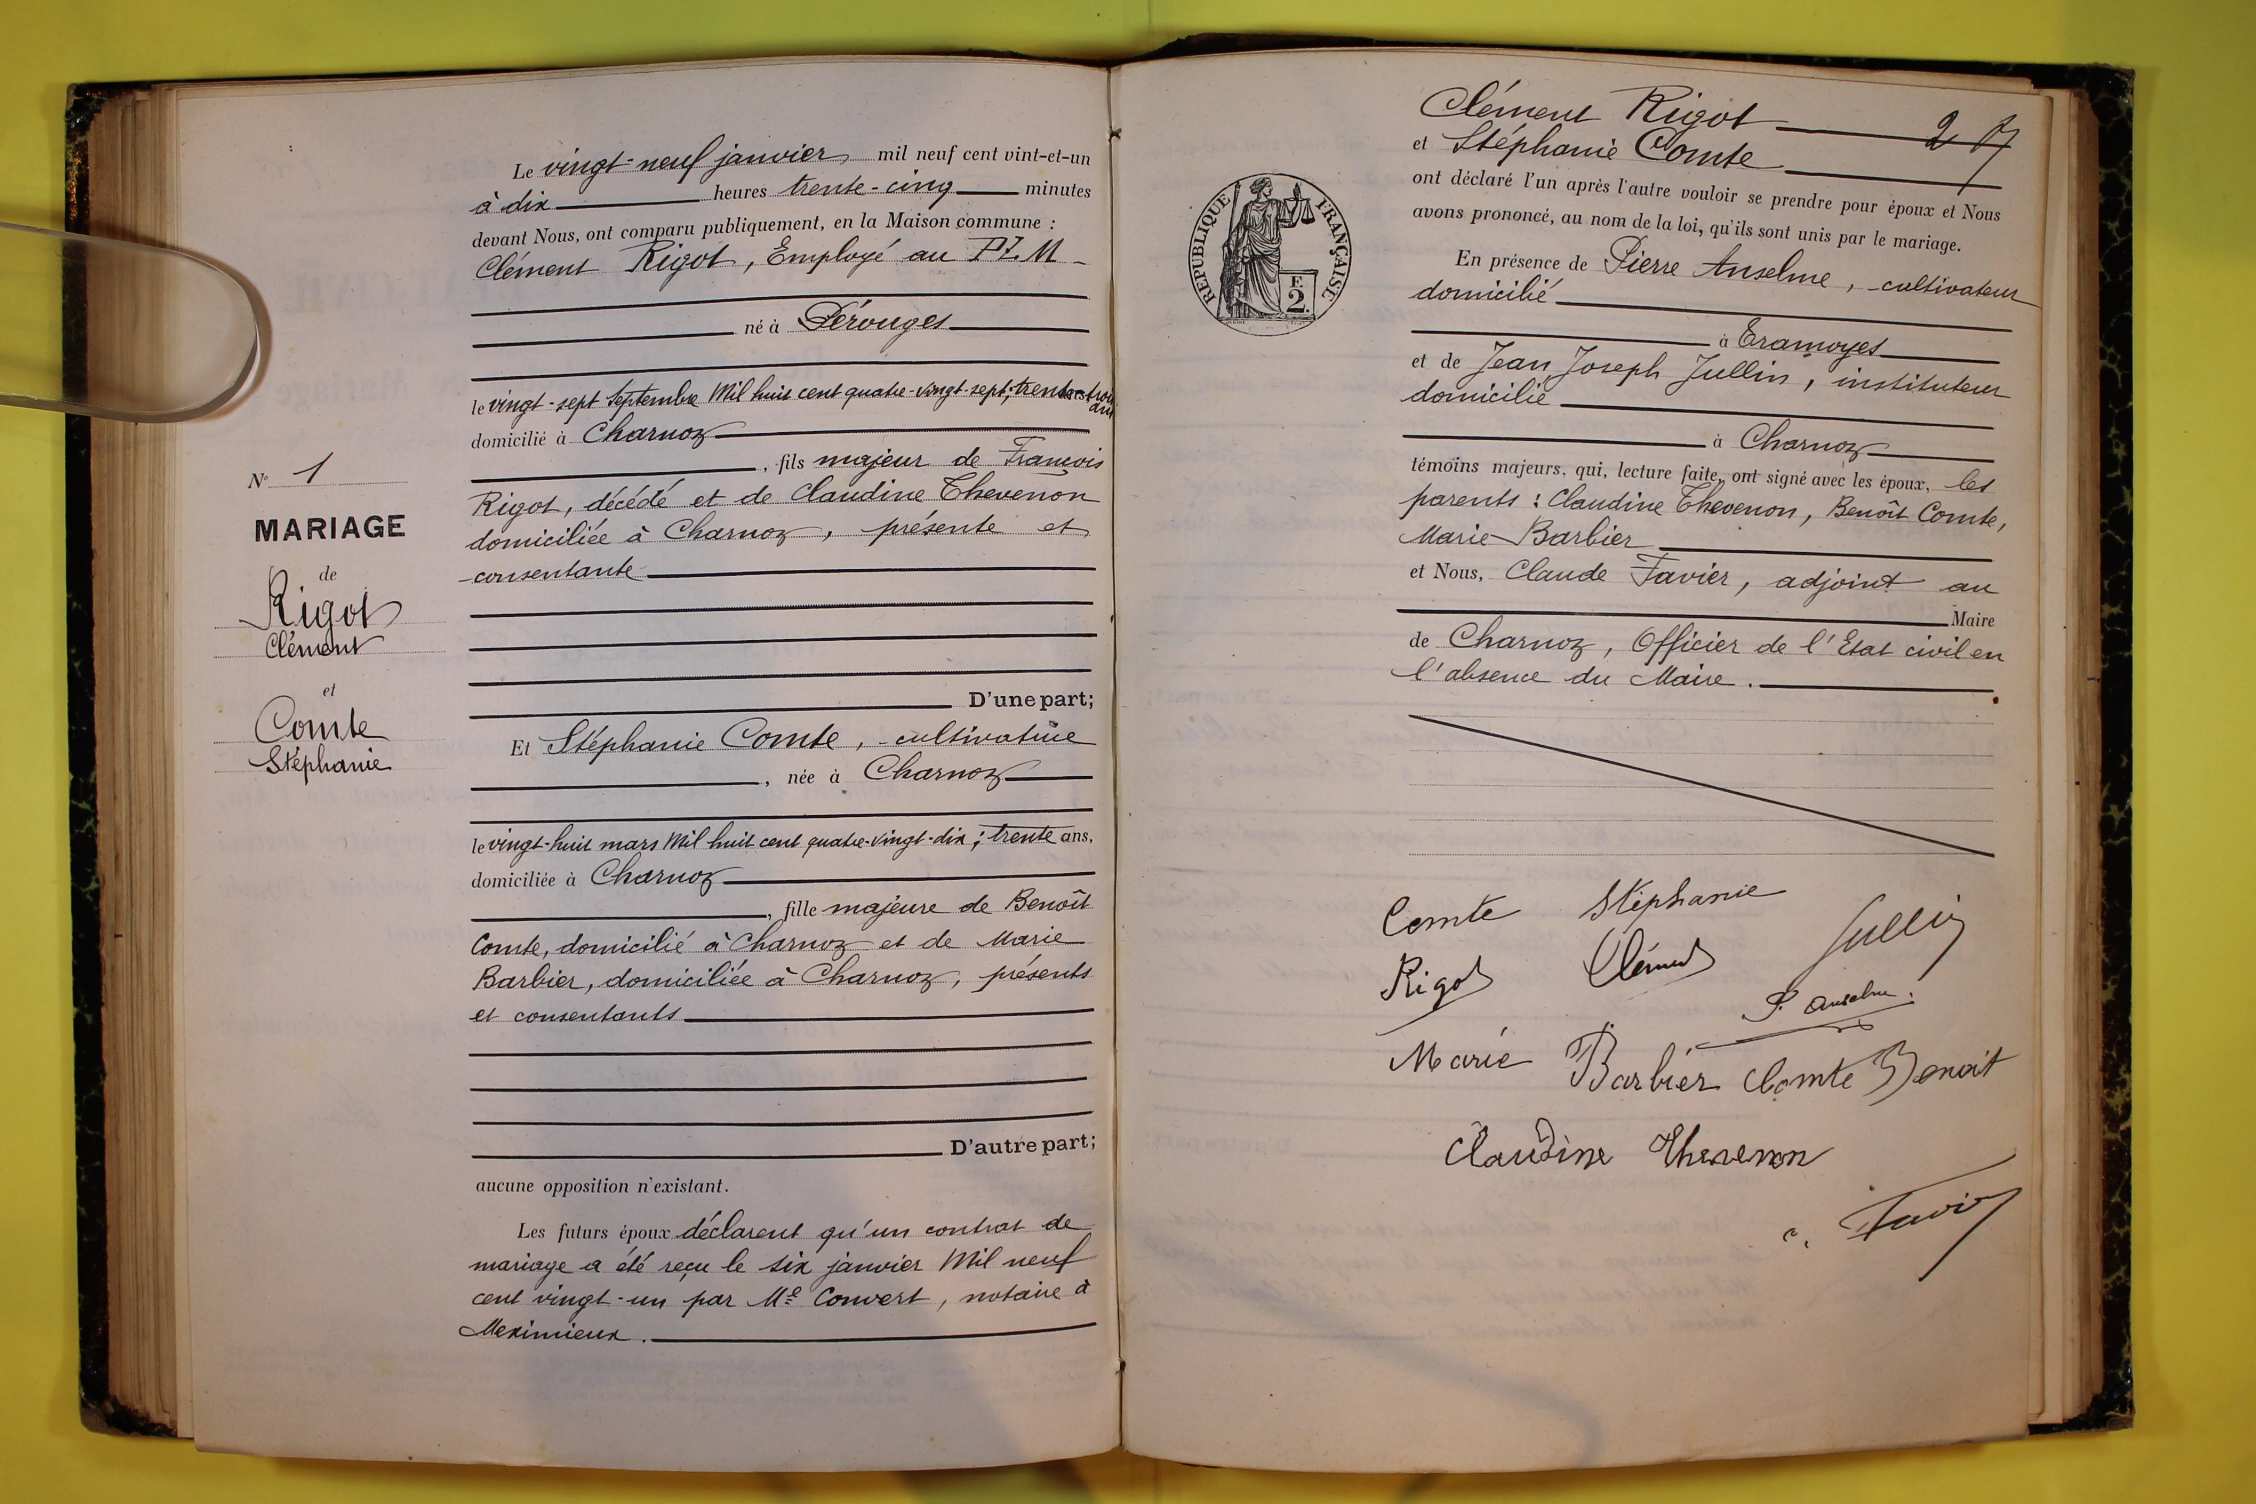 N° 1
MARIAGE
de
Rigot
Clément
et
Comte
Stéphanie
Le vingt-neuf janvier mil neuf cent vint-et-un
à dix heures trente-cinq minutes
devant Nous, ont comparu publiquement, en la Maison commune :
Clément Rigot, Employé au P.L.M
né à Pérouges
le vingt-sept Septembre Mil huit cent quatre-vingt-sept; trente-trois ans
domicilié à Charnoz
, fils majeur de François
Rigot, décédé et de Claudine Thevenon
domiciliée à Charnoz, présente et
consentante
D'une part;
Et Stéphanie Comte, cultivatrice
, née à Charnoz
le vingt-huit mars Mil huit cent quatre-vingt-dix; trente ans,
domiciliée à Charnoz
, fille majeure de Benoît
Comte, domicilié à Charnoz et de Marie
Barbier, domiciliée à Charnoz, présents
et consentants
D'autre part;
aucune opposition n'existant.
Les futurs époux déclarent qu'un contrat de
mariage a été reçu le six janvier Mil neuf
cent vingt-un par Me Convert, notaire à
Meximieux.
Clément Rigot
2
et Stéphanie Comte
ont déclaré l'un après l'autre vouloir se prendre pour époux et Nous
avons prononcé, au nom de la loi, qu'ils sont unis par le mariage.
RÉPUBLIQUE FRANÇAISE
E.
2.
En présence de Pierre Anselme, cultivateur
domicilié
à Tramoyes
et de Jean Joseph Jullin, instituteur
domicilié
à Charnoz
témoins majeurs, qui, lecture faite, ont signé avec les époux, les
parents : Claudine Thevenon, Benoît Comte,
Marie Barbier
et Nous, Claude Favier, adjoint au
Maire
de Charnoz, Officier de l'Etat civil en
l'absence du Maire.
Comte Stéphanie
Jullin
Rigot Clément
P. Anselme.
Marie Barbier Comte Benoit
Claudine Thevenon
C. Favier